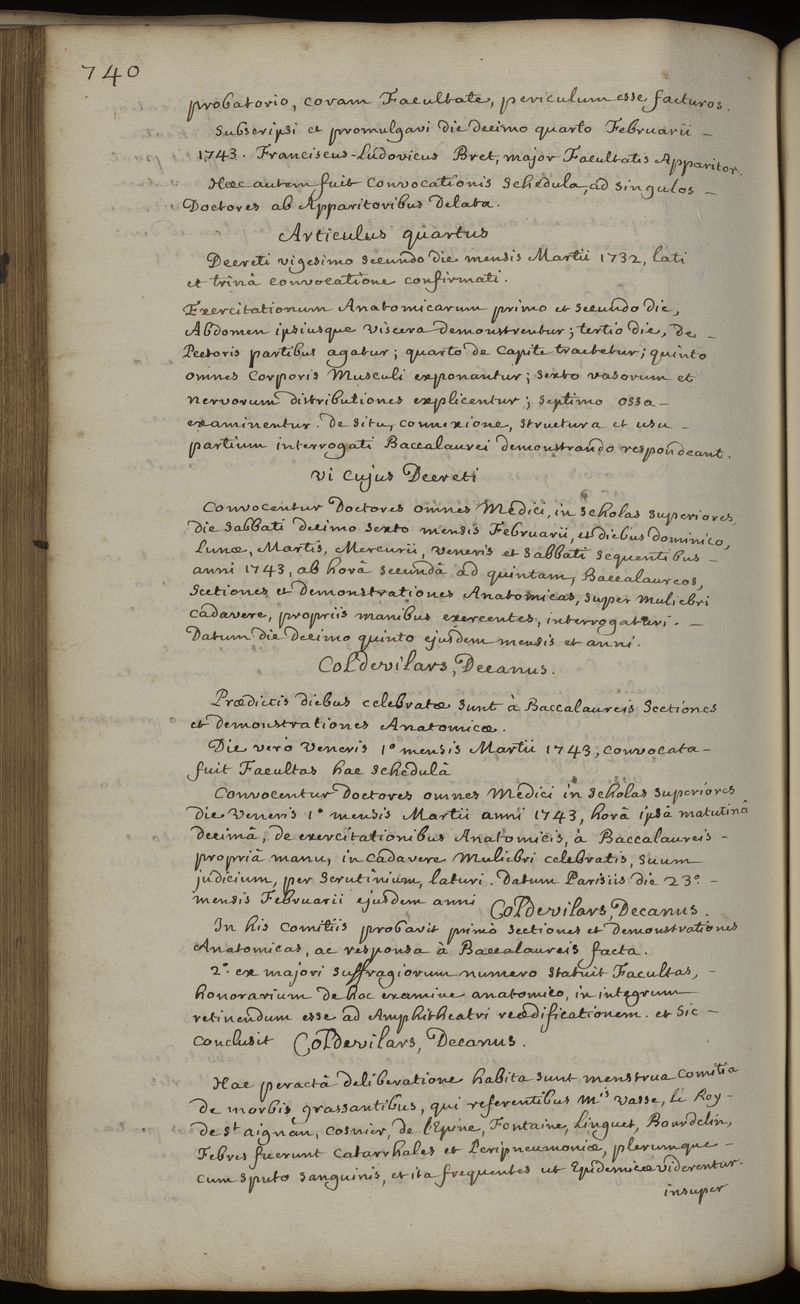 740
probatorio, coram Facultate, periculum esse facturos.
Subscripsi et promulgavi die decimo quarto Februarii -
1743. Franciscus-Ludovicus Bret, major Facultatis Apparitor.
Haec autem fuit Convocationis Schedula, ad singulos -
Doctores ab Apparitoribus delata.
Articulus quartus
Decreti vigesimo secundo die mensis Martii 1732, lati
et trinâ convocatione confirmati.
Exercitationum Anatomicarum primo et secundo die,
Abdomen ipsiusque viscera demonstrentur; tertio die, de -
Pectoris partibus agatur; quarto de Capite tractetur; quinto
omnes Corporis Musculi exponantur; sexto vasorum et
nervorum distributiones explicentur; septimo ossa -
examinentur. De situ, connexione, structura et usu -
partium interrogati Baccalaurei demonstrando respondeant.
Vi cujus Decreti
Convocentur Doctores omnes Medici, in Scholas superiores
die Sabbati decimo sexto mensis Februarii, et diebus dominico,
Lunæ, Martis, Mercurii, Veneris et Sabbati sequentibus -
anni 1743, ab horâ secundâ ad quintam, Baccalaureos,
Sectiones et demonstrationes Anatomicas, super muliebri
cadavere, propriis manibus exercentes, interrogaturi. -
Datum die decimo quinto ejusdem mensis et anni.
Col De vilars, Decanus.
Prædictis diebus celebratæ sunt à Baccalaureis Sectiones
et demonstrationes Anatomicæ.
Die verò Veneris 1º mensis Martii 1743, convocata -
fuit Facultas hac schedulâ
Convocentur Doctores omnes Medici in Scholas superiores
die Veneris 1º mensis Martii anni 1743, horâ ipsâ matutinâ
decimâ, de exercitationibus Anatomicis, à Baccalaureis -
propriâ manu, in cadavere muliebri celebratis, suum
judicium, per scrutinium, laturi. Datum Parisiis die 23º -
mensis Februarii ejusdem anni Col De vilars, Decanus.
In his Comitiis probavit primò sectiones et demonstrationes
Anatomicas, ac responsa à Baccalaureis facta.
2º. ex majori suffragiorum numero statuit Facultas, -
honorarium de hoc examine anatomico, in integrum
retinendum esse ad Amphitheatri reædificationem. et sic -
Conclusit Col De vilars, Decanus.
Hac peractâ deliberatione habita sunt menstrua Comitia
de morbis grassantibus, qui referentibus Mris Vasse, le Roy -
de St aignan, Cosnier, de l'Epine, Fontaine, Linguet, Bourdelin,
Febres fuerunt catarrhales et Peripneumoniæ, plerumque -
cum sputo sanguinis, et ita frequentes ut Epidemicæ viderentur.
insuper